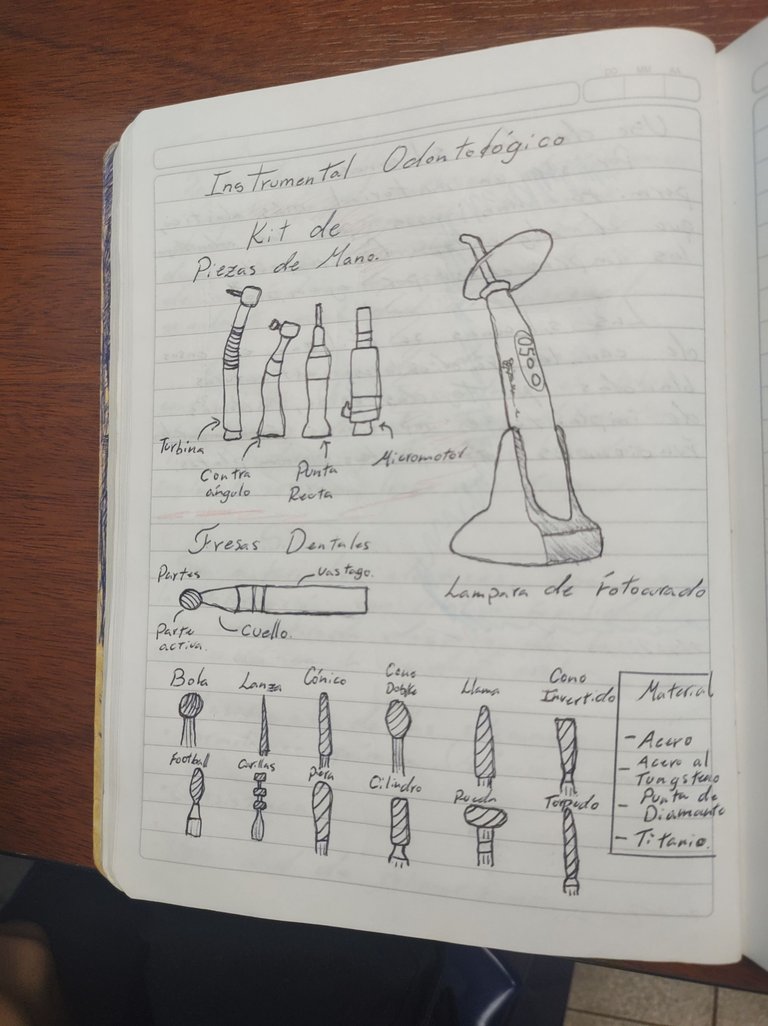 Instrumental Odontológico
Kit de
Piezas de Mano.
Turbina
Contra
ángulo
Punta
Recta
Micromotor
Lampara de fotocurado
Fresas Dentales
Partes
vastago.
Parte
activa.
Cuello.
Bola
Lanza
Cónico
Cono
Doble
Llama
Cono
Invertido
Football
Carillas
Pera
Cilindro
Rueda
Torpedo
Material
- Acero
- Acero al
Tungsteno
- Punta de
Diamante
- Titanio.